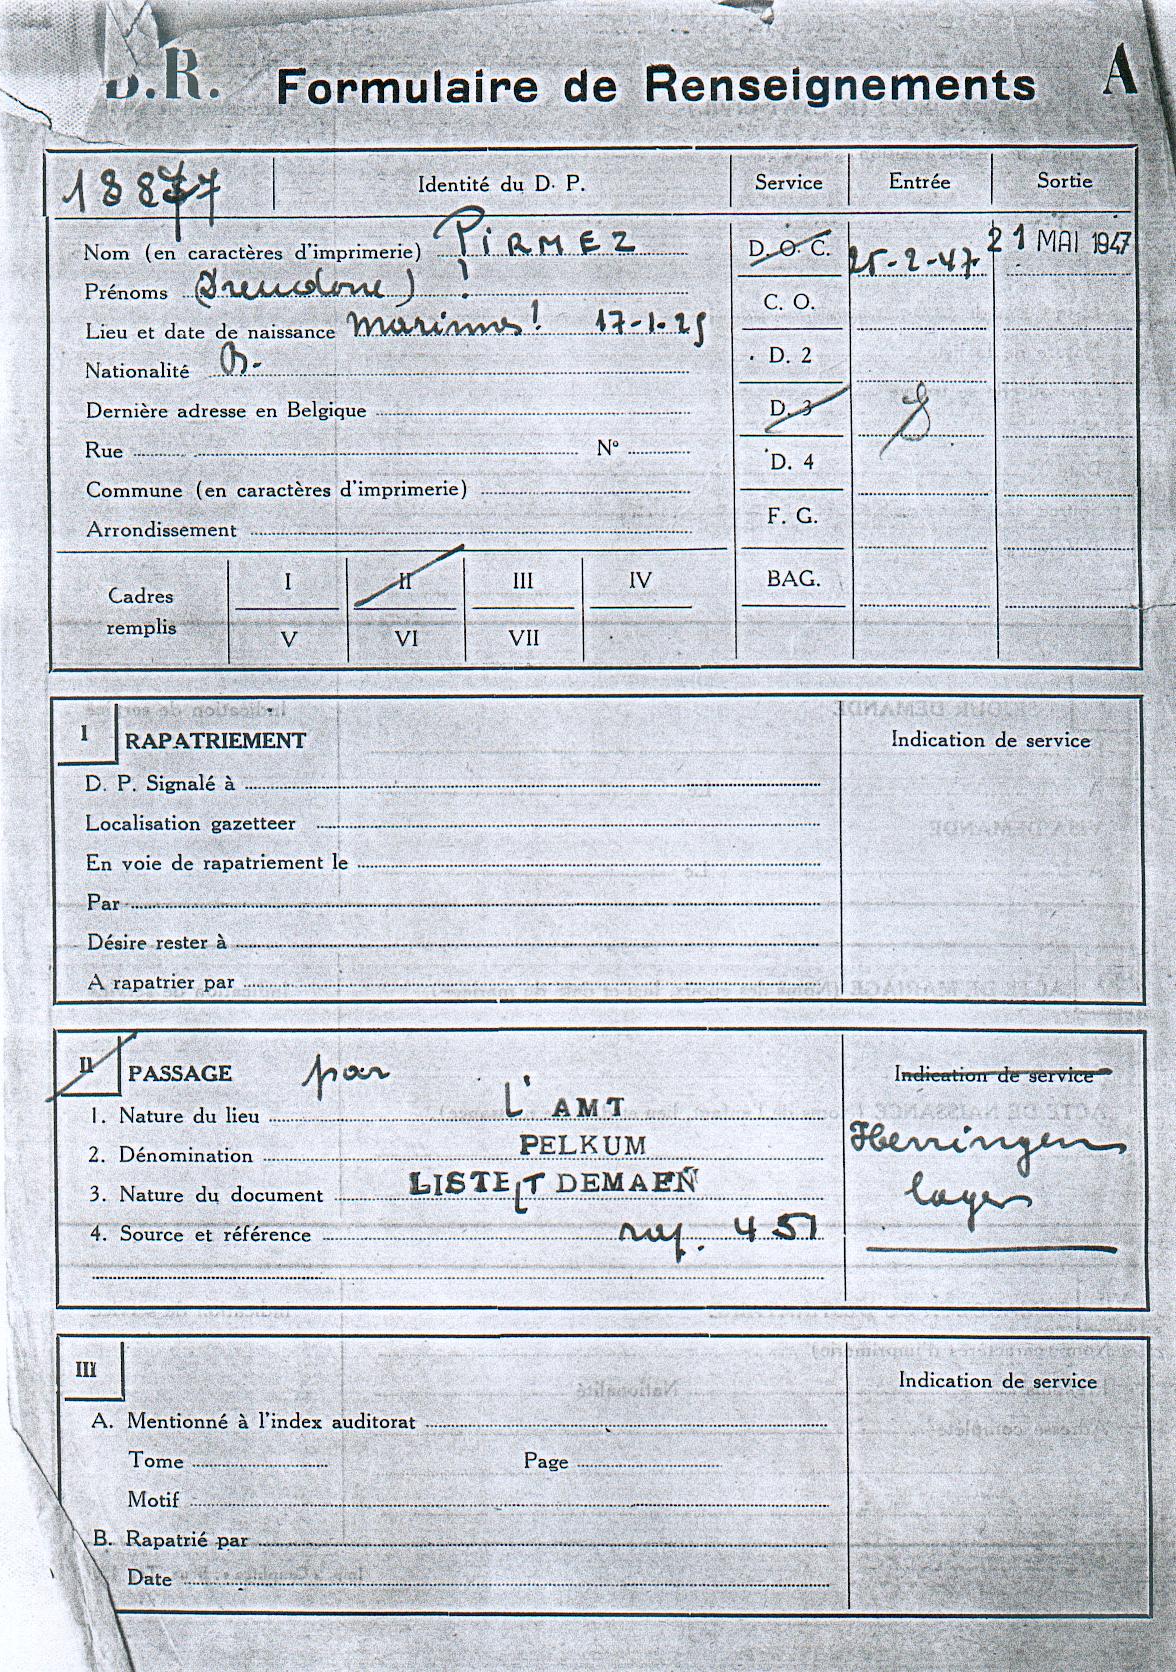 D.R. Formulaire de Renseignements A
18877
Identité du D. P.
Service Entrée Sortie
Nom (en caractères d'imprimerie) PIRMEZ
Prénoms
Lieu et date de naissance 17-1-25
Nationalité B.
Dernière adresse en Belgique
Rue N°
Commune (en caractères d'imprimerie)
Arrondissement
D. O. C. 25-2-47 21 MAI 1947
C. O.
D. 2
D. 3
D. 4
F. G.
BAG.
Cadres remplis
I II III IV
V VI VII
I RAPATRIEMENT Indication de service
D. P. Signalé à
Localisation gazetteer
En voie de rapatriement le
Par
Désire rester à
A rapatrier par
II PASSAGE par Indication de service
1. Nature du lieu L'AMT
2. Dénomination PELKUM
3. Nature du document LISTE
4. Source et référence 451
Herringen
lager
III Indication de service
A. Mentionné à l'index auditorat
Tome Page
Motif
B. Rapatrié par
Date